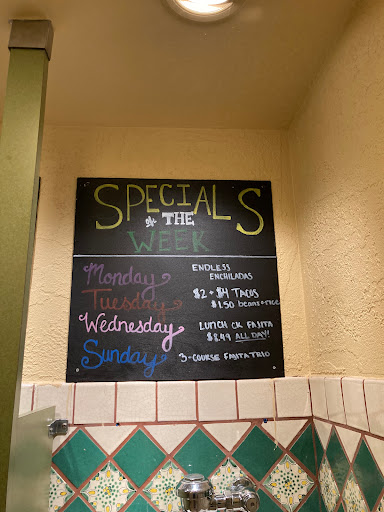 SPECIALS
of THE
WEEK
Monday ENDLESS
ENCHILADAS
Tuesday $2 + $4 TACOS
$1.50 beans + rice
Wednesday LUNCH CK FAJITA
$8.49 ALL DAY!
Sunday 3-COURSE FAJITA TRIO